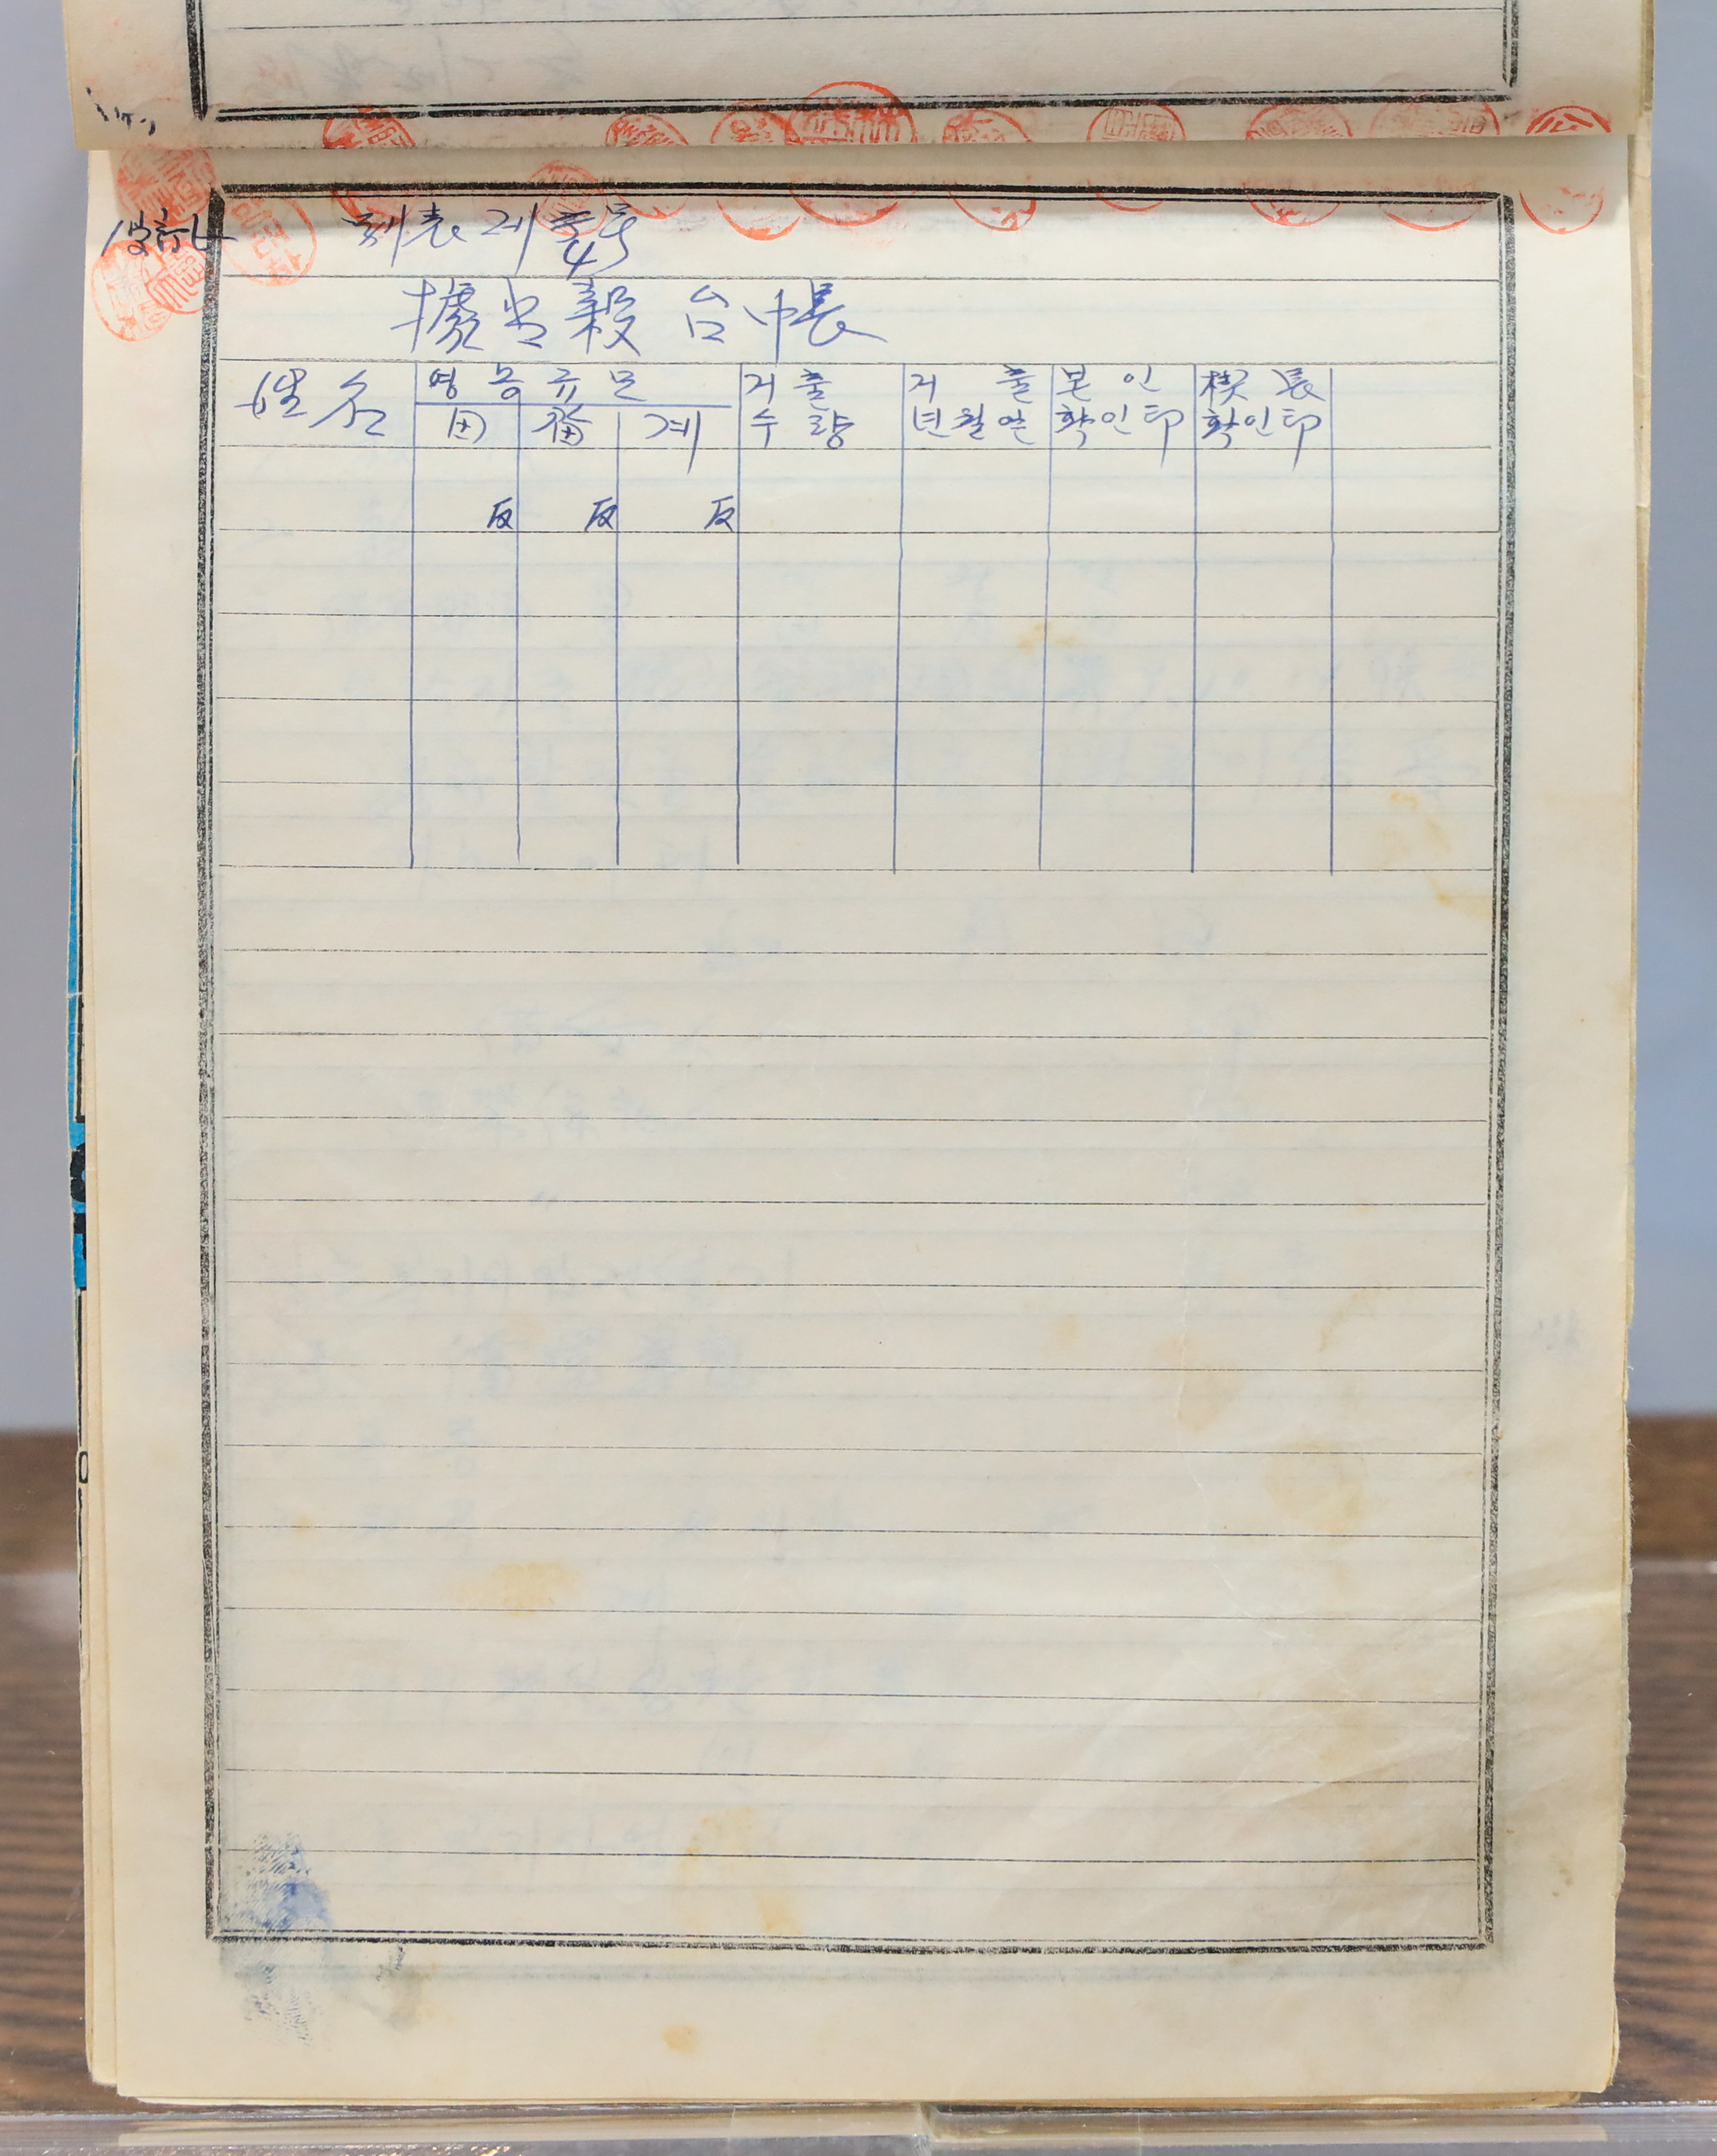 別表 제 4号
據出穀 台帳
姓名 영농규모 거출 거출 본인 楔長
田 畓 계 수량 년월일 확인印 확인印
反 反 反